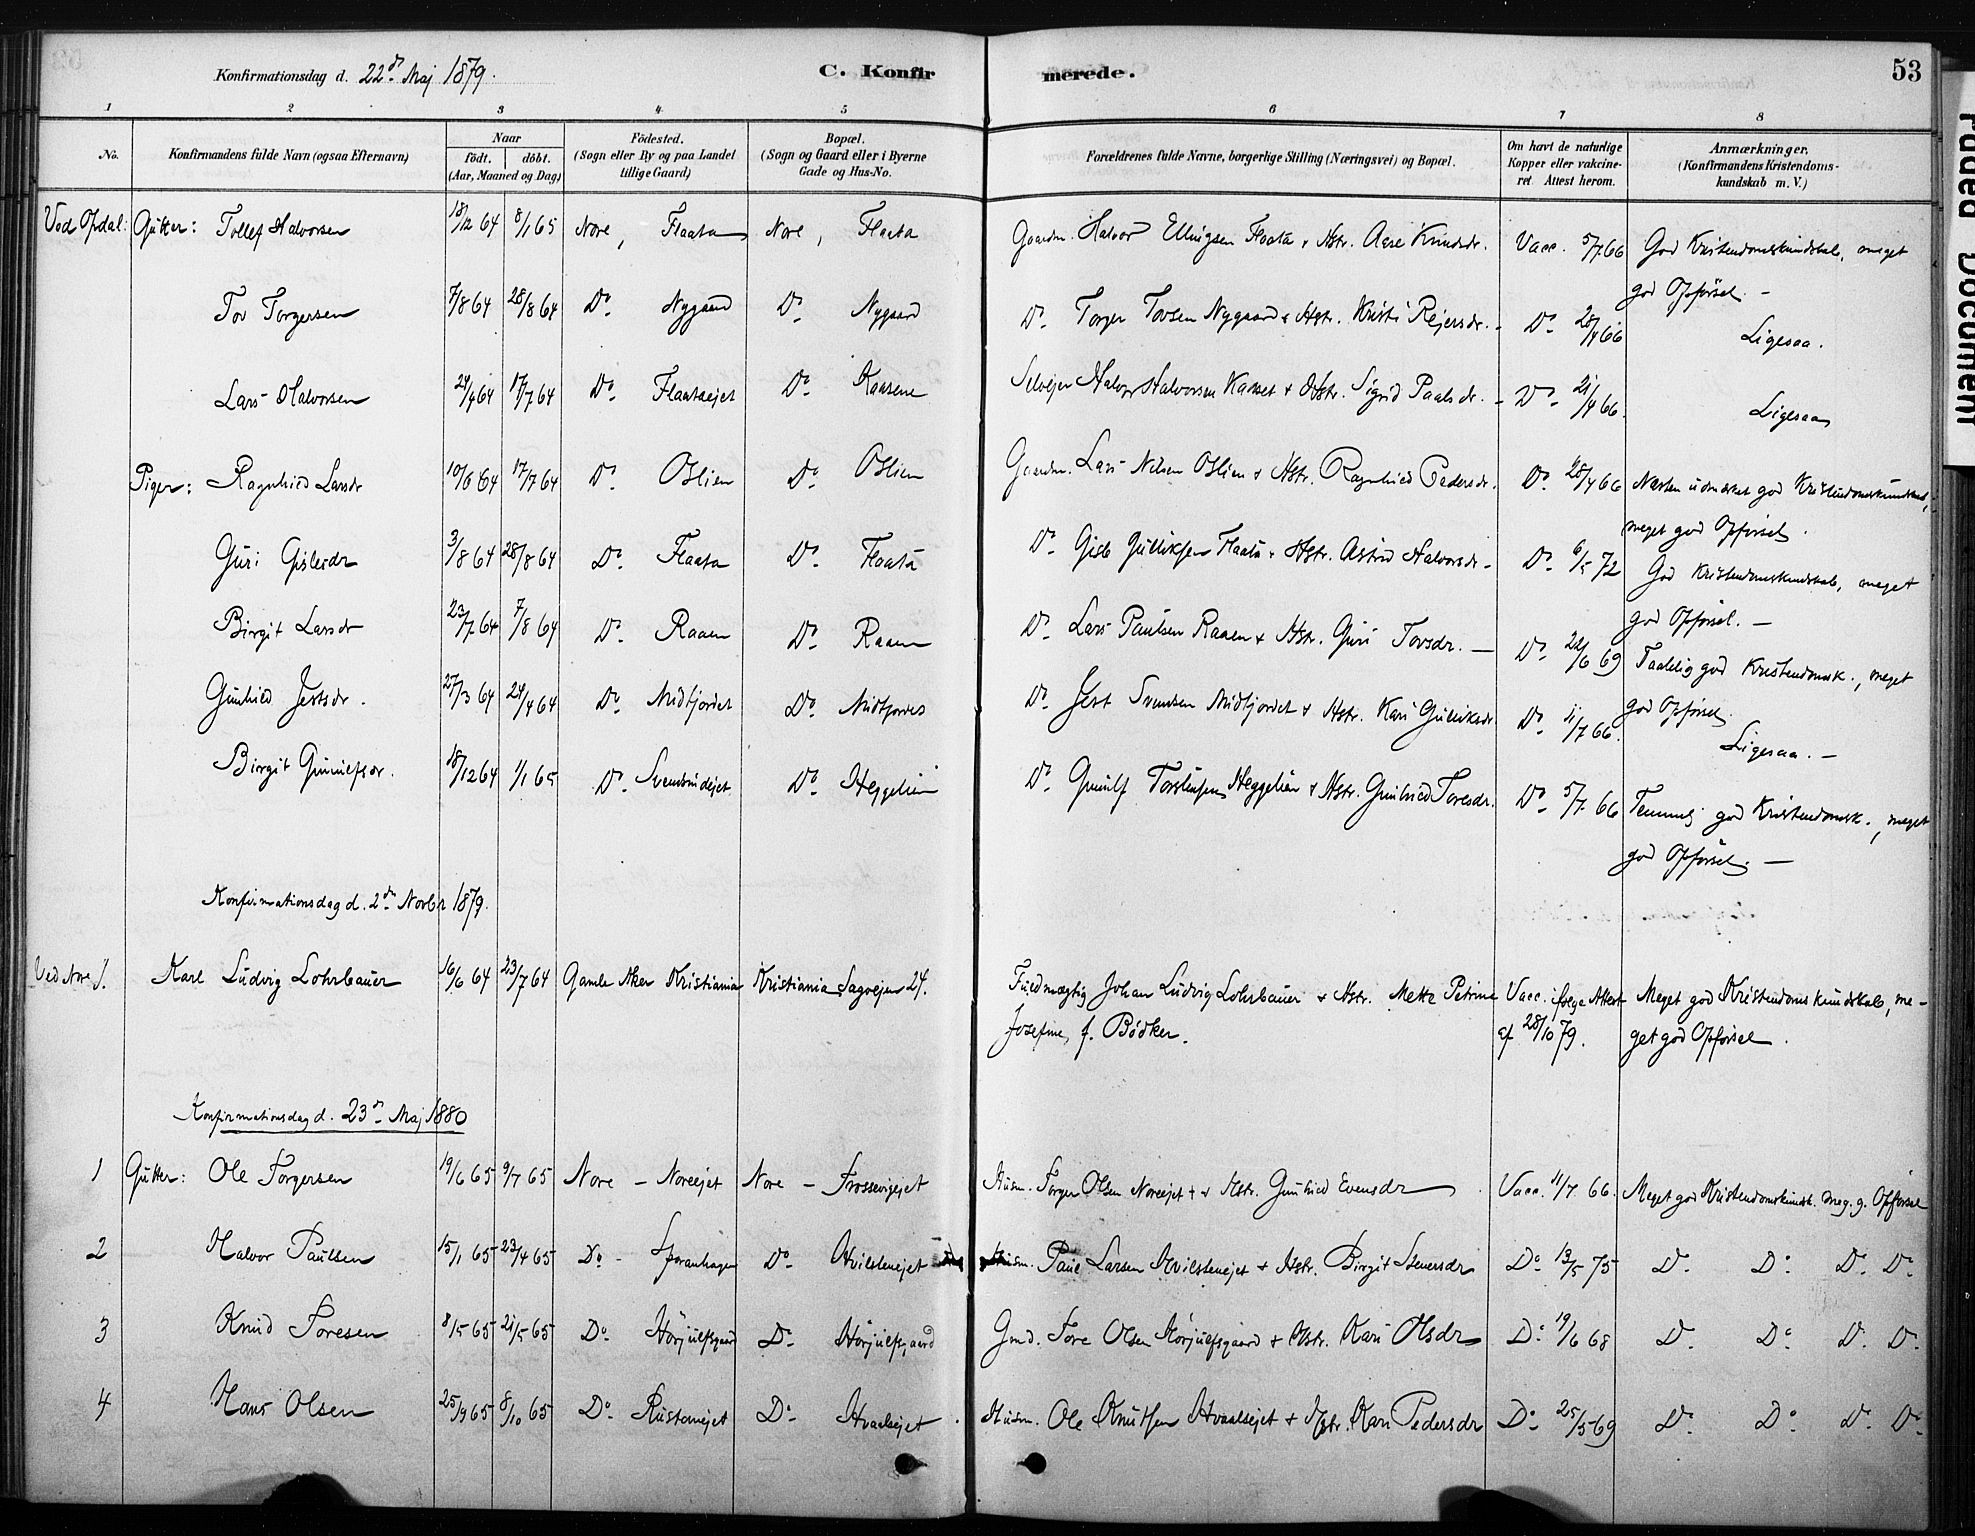 Konfirmationsdag d. 22de Maj 1879. C. Konfirmerede. 53
1 2 3 4 5 6 7 8
No. Konfirmandens fulde Navn (ogsaa Efternavn) Naar födt. döbt. (Aar, Maaned og Dag) Födested. (Sogn eller By og paa Landet tillige Gaard) Bopæl. (Sogn og Gaard eller i Byerne Gade og Hus-No. Forældrenes fulde Navne, borgerlige Stilling (Næringsvei) og Bopæl. Om havt de naturlige Kopper eller vakcineret. Attest herom. Anmærkninger. (Konfirmandens Kristendomskundskab m. V.)
Ved Opdal: Gutter: Tollef Halvorsen 18/12 64 8/1 65 Nore, Flaata Nore, Flaata Gaardm. Halvor Ellingsen Flaata & Hstr. Aase Knudsdr. Vacc. 5/7 66 God Kristendomskundskab, meget
god Opförsel. -
Tov Torgersen 7/8 64 28/8 64 Do Nygaard Do Nygaard Do Torger Tovsen Nygaard & Hstr. Kristi Rejersdr. - Do 28/4 66 Ligesaa.
Lars Halvorsen 24/4 64 17/7 64 Do Flaataejet Do Kaasene Selvejer Halvor Halvorsen Kaaset & Hstr. Sigrid Paalsdr. - Do 21/4 66. Ligesaa
Piger: Ragnhild Larsdr 10/6 64 17/7 64 Do Oslien Do Oslien Gaardm. Lars Nilsen Oslien & Hstr. Ragnhild Pedersdr. Do 28/4 66 Næsten udmærket god Kristendomskundskab,
meget god Opförsel.
Guri Gislesdr 3/8 64 28/8 64 Do Flaata Do Flaata Do Gisle Gulliksen Flaata & Hstr. Astrid Halvorsdr - Do 6/5 72 God Kristendomskundskab, meget
god Opförsel. -
Birgit Larsdr 23/7 64 7/8 64 Do Raaen Do Raaen Do Lars Paulsen Raaen & Hstr. Guri Tovsdr. - Do 22/6 69 Taalelig god Kristendomsk., meget
god Opförsel.
Gunhild Jertsdr. 27/3 64 24/4 64 Do Midtfjordet Do Midtfjordet Do Jert Svendsen Midtfjordet & Hstr. Kari Gulliksdr Do 11/7 66. Ligesaa. -
Birgit Gunulfsdr. 18/12 64 1/1 65 Do Svendsrudejet Do Heggelien Do Gunulf Torsteinsen Heggelien & Hstr. Gunhild Toresdr. Do 5/7 66 Temmelig god Kristendomsk., meget
god Opförsel. -
Konfirmationsdag d. 2den Novbr 1879.
Ved Nore 1. Karl Ludvig Lohrbauer 16/6 64 23/7 64 Gamle Aker Kristiania Kristiania Sagvejen 24. Fuldmægtig Johan Ludvig Lohrbauer & Hstr. Mette Petrine Vacc. ifölge Attest Meget god Kristendomskundskab, me-
Josefine, f. Bödker. af 28/10 79. get god Opförsel.
Konfirmationsdag d. 23de Maj 1880
1 Gutter: Ole Torgersen 19/6 65 9/7 65 Nore - Noreejet Nore - Frossevigejet Husm. Torger Olsen Noreejet + & Hstr. Gunhild Evensdr Vacc. 11/7 66. Meget god Kristendomskundsk. meg. g. Opförsel
2 Halvor Paulsen 15/1 65 23/4 65 Do - Do Hvilstenejet Husm. Paul Larsen Hvilstenejet & Hstr. Birgit Stenersdr Do 13/5 75 Do Do Do Do
3 Knud Toresen 8/5 65 21/5 65 Do Hörjulfsgaard Do Hörjulfsgaard Gmd. Tore Olsen Hörjulfsgaard & Hstr. Kari Olsdr Do 19/6 68 Do Do Do Do
4 Hans Olsen 25/9 65 8/10 65 Do Rustenejet Do Hvaalsejet. Husm. Ole Knutsen Hvaalsejet & Hstr. Kari Pedersdr Do 25/5 69 Do Do Do Do
Faded Document